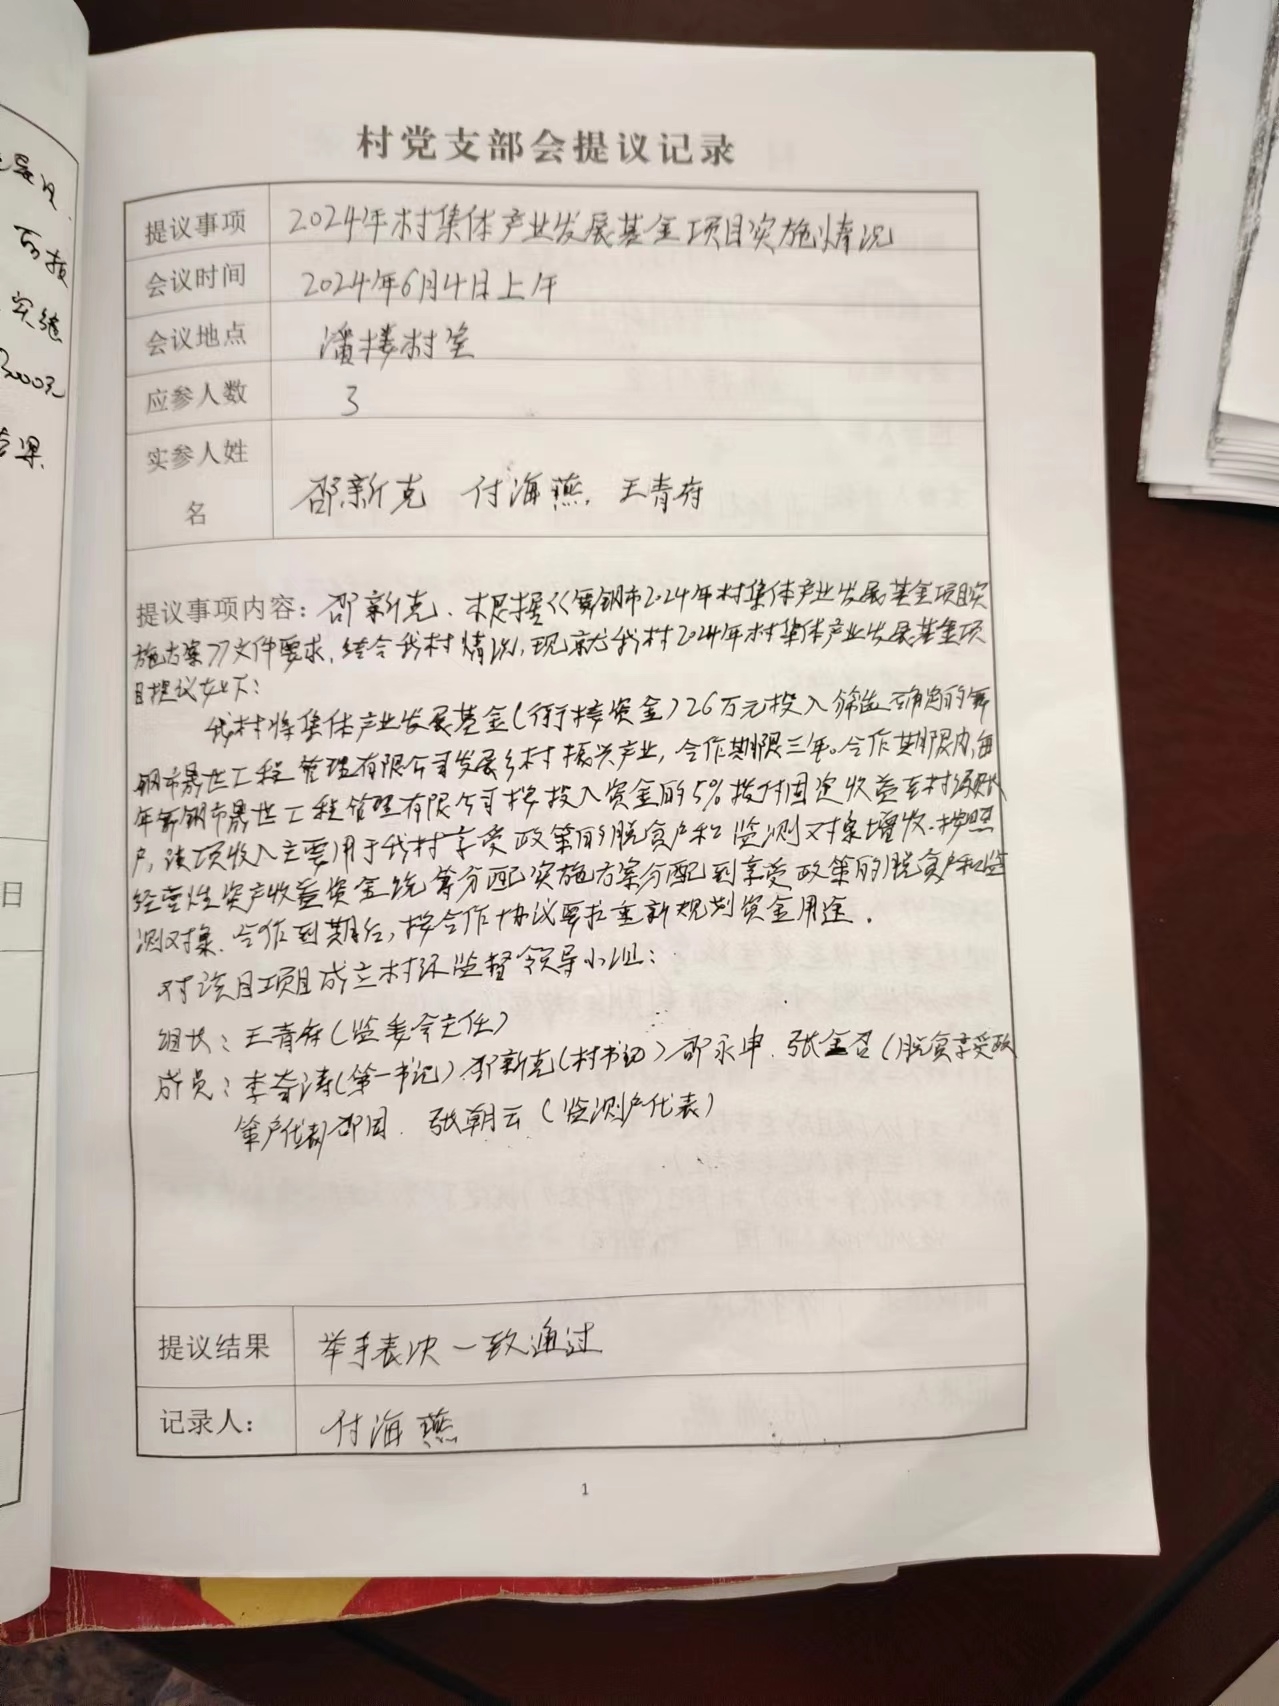 村党支部会提议记录
提议事项 2024年村集体产业发展基金项目实施情况
会议时间 2024年6月4日上午
会议地点 潘楼村室
应参人数 3
实参人姓名 邵新克 付海燕 王青府
提议事项内容：邵新克、根据《舞钢市2024年村集体产业发展基金项目实
施方案》文件要求，结合我村情况，现就我村2024年村集体产业发展基金项
目提议如下：
我村将集体产业发展基金(衔接资金)26万元投入筛选确定的舞
钢市晟世工程管理有限公司发展乡村振兴产业，合作期限三年。合作期限内，每
年舞钢市晟世工程管理有限公司按投入资金的5%拨付固定收益至村级账
户，该项收入主要用于我村享受政策的脱贫户和监测对象增收。按照
经营性资产收益资金统筹分配实施方案分配到享受政策的脱贫户和监
测对象。合作到期后，按合作协议要求重新规划资金用途。
对该目项目成立村级监督领导小组：
组长：王青府(监委会主任)
成员：李奇涛(第一书记) 邵新克(村书记) 邵永申、张金召(脱贫享受政
策户代表) 邵国、张朝云(监测户代表)
提议结果 举手表决一致通过
记录人： 付海燕
1
日
3000元